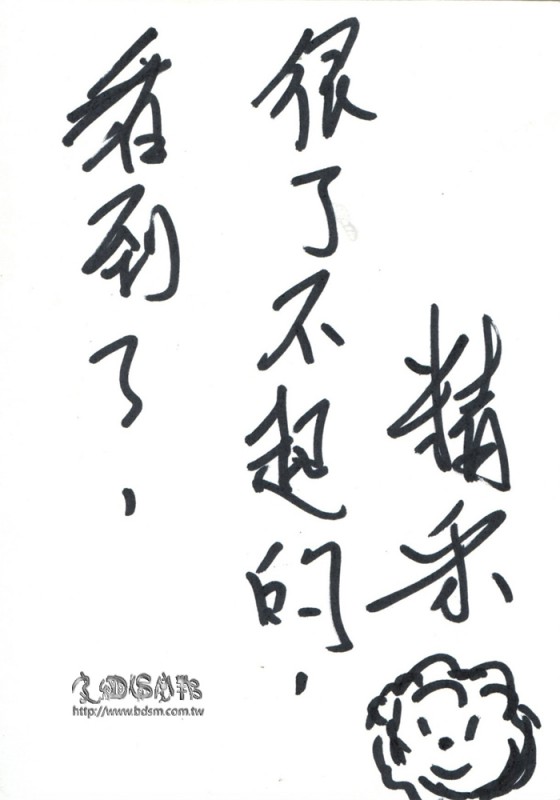 精采
很了不起的，
看到了，
http://www.bdsm.com.tw